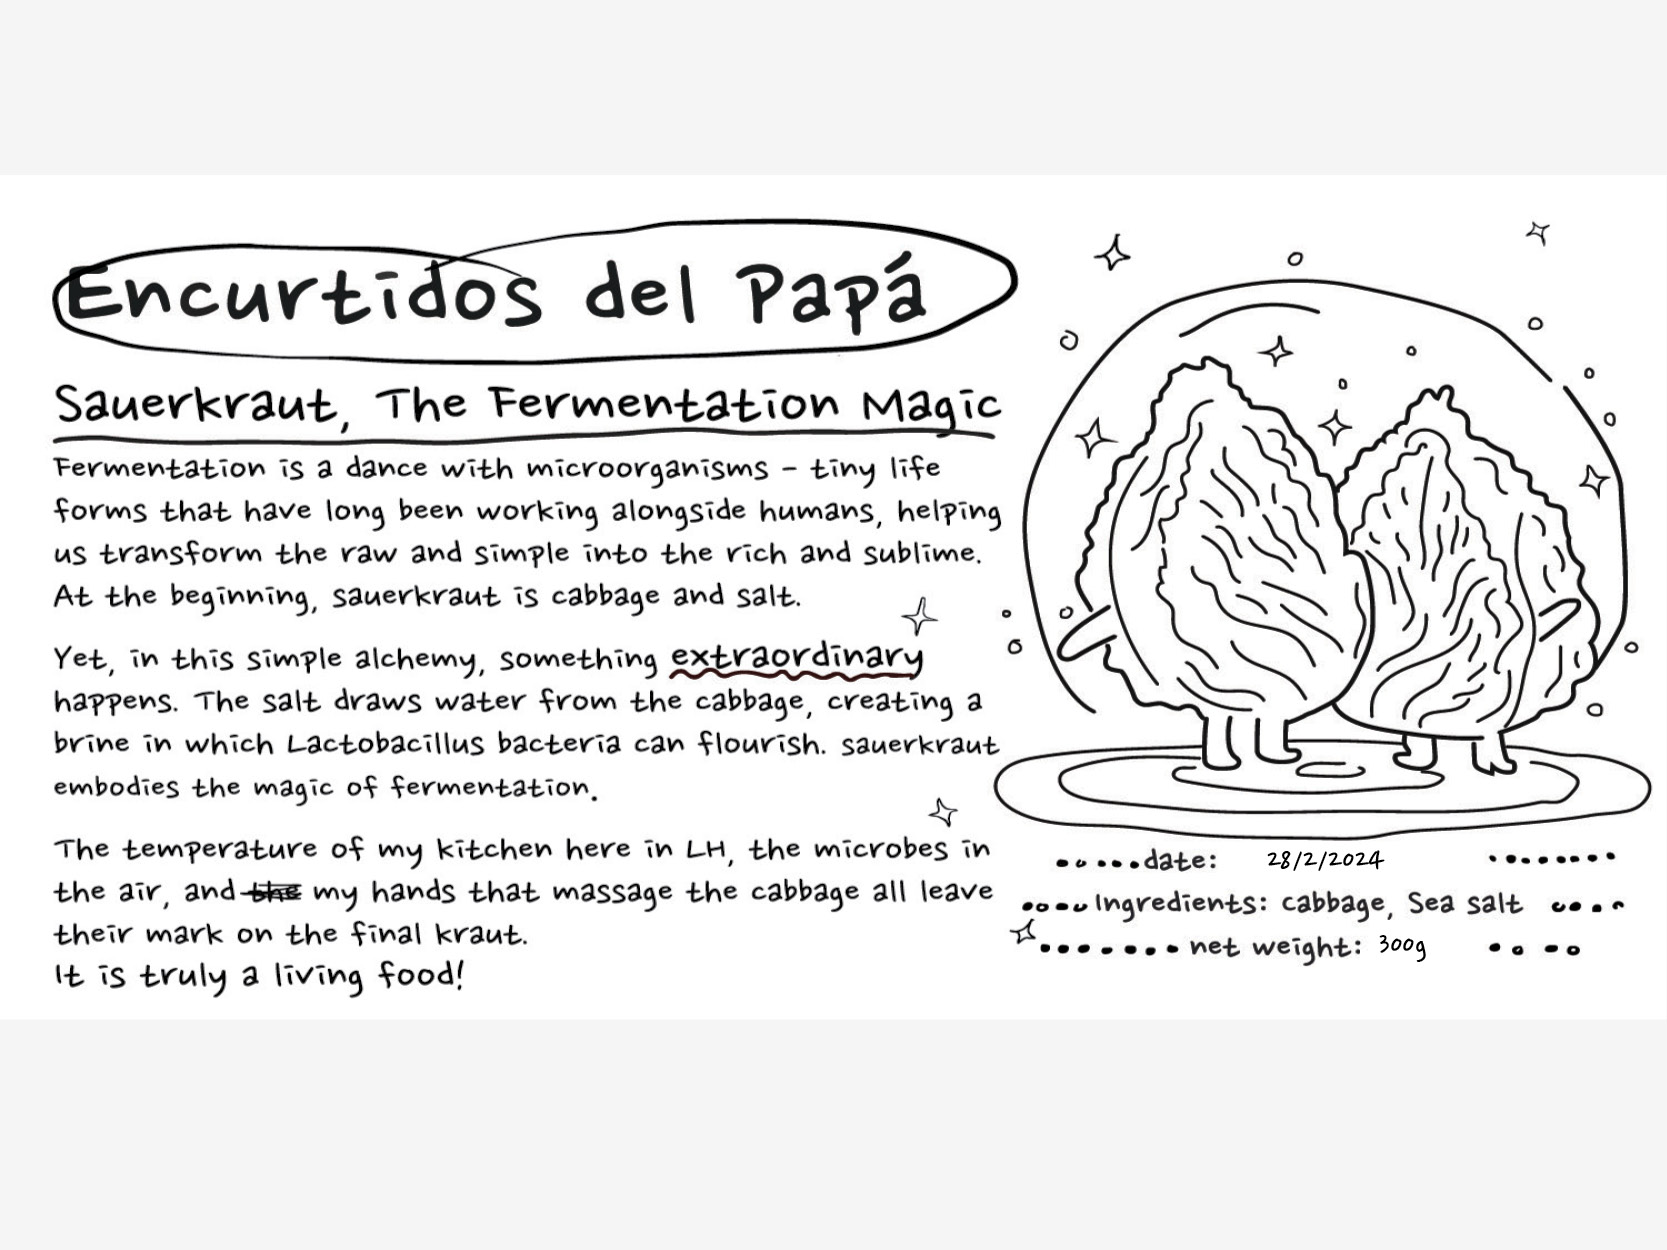 Encurtidos del Papá
Sauerkraut, The Fermentation Magic
Fermentation is a dance with microorganisms - tiny life
forms that have long been working alongside humans, helping
us transform the raw and simple into the rich and sublime.
At the beginning, sauerkraut is cabbage and salt.
Yet, in this simple alchemy, something extraordinary
happens. The salt draws water from the cabbage, creating a
brine in which Lactobacillus bacteria can flourish. sauerkraut
embodies the magic of fermentation.
The temperature of my kitchen here in LH, the microbes in
the air, and the my hands that massage the cabbage all leave
their mark on the final kraut.
It is truly a living food!
date: 28/2/2024
Ingredients: cabbage, Sea salt
net weight: 300g